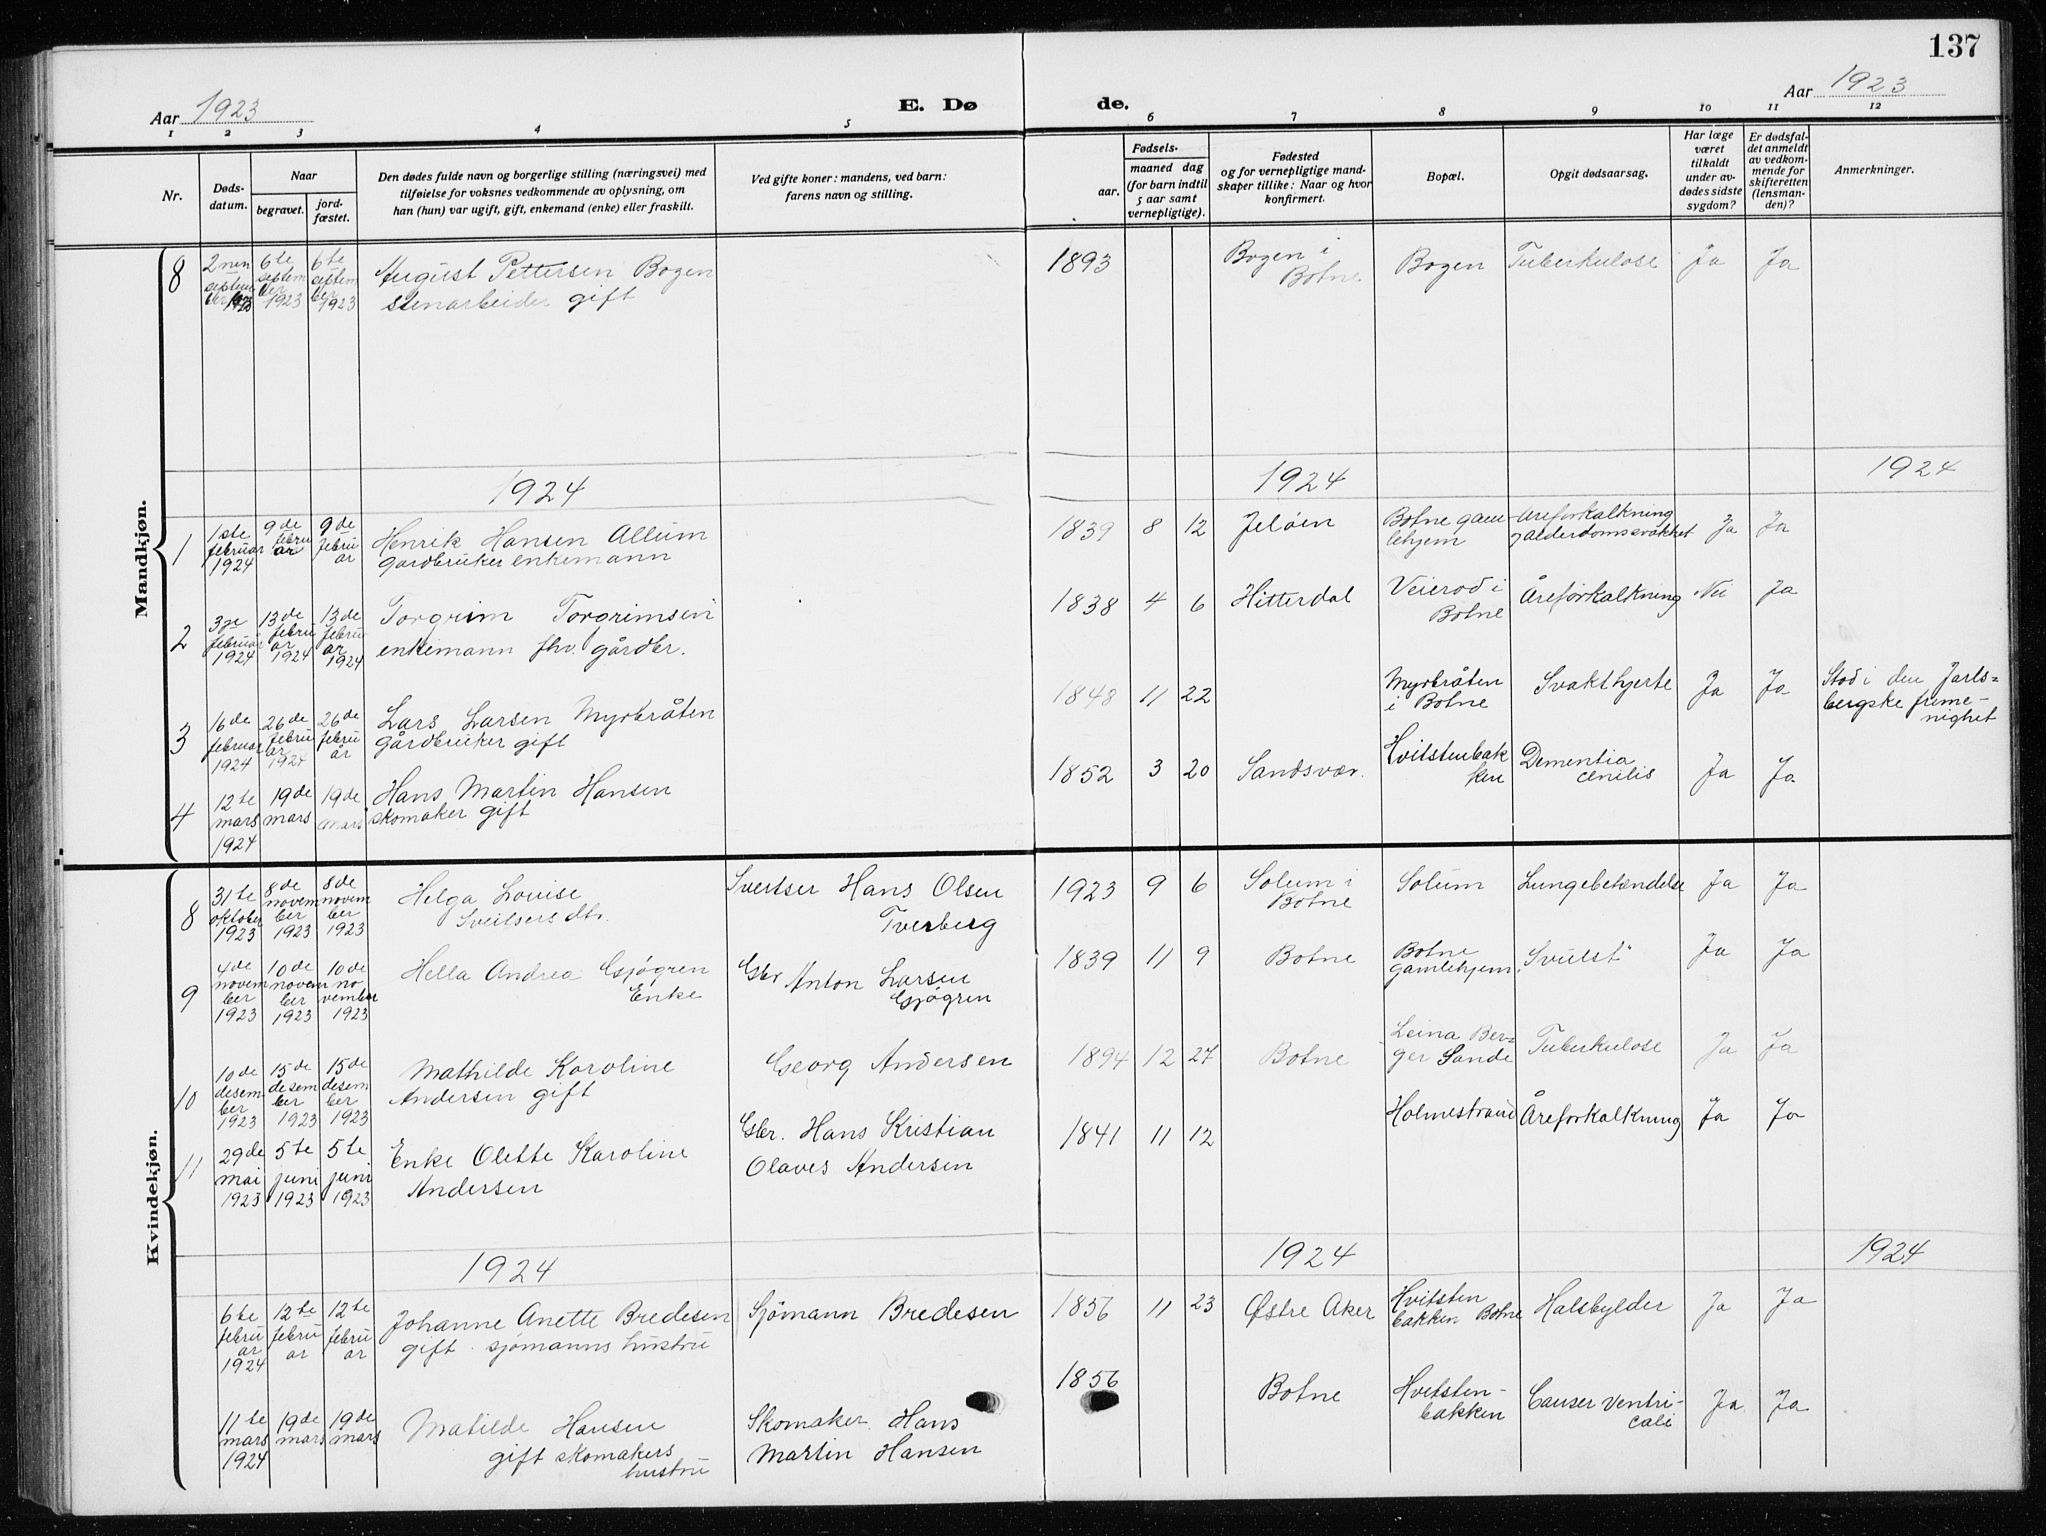 137
Aar 1923
E. Dø
de.
Aar 1923
1 2 3 4 5 6 7 8 9 10 11 12
Nr.
Døds-
datum.
Naar
begravet.
jord-
fæstet.
Den dødes fulde navn og borgerlige stilling (næringsvei) med
tilføielse for voksnes vedkommende av oplysning, om
han (hun) var ugift, gift, enkemand (enke) eller fraskilt.
Ved gifte koner: mandens, ved barn:
farens navn og stilling.
Fødsels-
aar.
maaned dag
(for barn indtil
5 aar samt
vernepligtige).
Fødested
og for vernepligtige mand-
skaper tillike: Naar og hvor
konfirmert.
Bopæl.
Opgit dødsaarsag.
Har læge
været
tilkaldt
under av-
dødes sidste
sygdom?
Er dødsfal-
det anmeldt
av vedkom-
mende for
skifteretten
(lensman-
den)?
Anmerkninger.
Mandkjøn.
8
2nen
septem
ber 1923
6te
septem
ber
1923
6te
septem
ber
1923
August Pettersen Bogen
stenarbeider gift
1893
Bogen i
Botne
Bogen
Tuberkulose
Ja
Ja
1924
1924
1924
1
1ste
februar
1924
9de
febru
ar
9de
febru
ar
Henrik Hansen Allum
gardbruker enkemann
1839 8 12
Jeløen
Botne gam-
lehjem
Areforkalkning
og alderdomssvakhet
Ja
Ja
2
3je
februar
1924
13de
febru
ar
1924
13de
febru
ar
1924
Torgrim Torgrimsen
enkemann fhv. gårdbr.
1838 4 6
Hitterdal
Veierød i
Botne
Åreforkalkning
Nei
Ja
3
16de
februar
1924
26de
febru
ar
1924
26de
febru
år
Lars Larsen Myrbråten
gårdbruker gift
1848 11 22
Myrbråten
i Botne
Svakt hjerte
Ja
Ja
Stod i den Jarls=
bergske frime-
nighet
4
12te
mars
1924
19de
mars
19de
mars
Hans Martin Hansen
skomaker gift
1852 3 20
Sandsvær.
Hvitstenbak
ken
Dementia
cenilis
Ja
Ja
Kvindekjøn.
8
31te
oktober
1923
8de
novem
ber
1923
8de
novem
ber
1923
Helga Lovise
Sveitsers dtr.
Svertser Hans Olsen
Tverberg
1923 9 6
Solum i
Botne
Solum
Lungebetændelse
Ja
Ja
9
4de
novem
ber
1923
10de
novem
ber
1923
10de
no
vember
1923
Hella Andrea Gjøgren
Enke
Gbr Anton Larsen
Gjøgren
1839 11 9
Botne
Botne
gamlehjem
"Svulst"
Ja
Ja
10
10de
desem
ber
1923
15de
desem
ber
1923
15de
desem
ber
1923
Mathilde Karoline
Andersen gift
Georg Andersen
1894 12 27
Botne
Leina Ber=
ger Sande
Tuberkulose
Ja
Ja
11
29de
mai
1923
5te
juni
1923
5te
juni
1923
Enke Olette Karoline
Andersen
Gbr. Hans Kristian
Olaves Andersen
1841 11 12
Holmestrand
Åreforkalkning
Ja
Ja
1924
1924
1924
6te
febru
ar
1924
12te
febru
ar
12te
febru
ar
Johanne Anette Bredesen
gift sjømanns hustru
Sjømann Bredesen
1856 11 23
Østre Aker
Hvitsten
bakken Botne
Halsbylder
Ja
Ja
11te
mars
1924
19de
mars
19de
mars
Matilde Hansen
gift skomakers
hustru
Skomaker Hans
Martin Hansen
1856
Botne
Hvitsten-
bakken
Causer Ventri-
cali
Ja
Ja